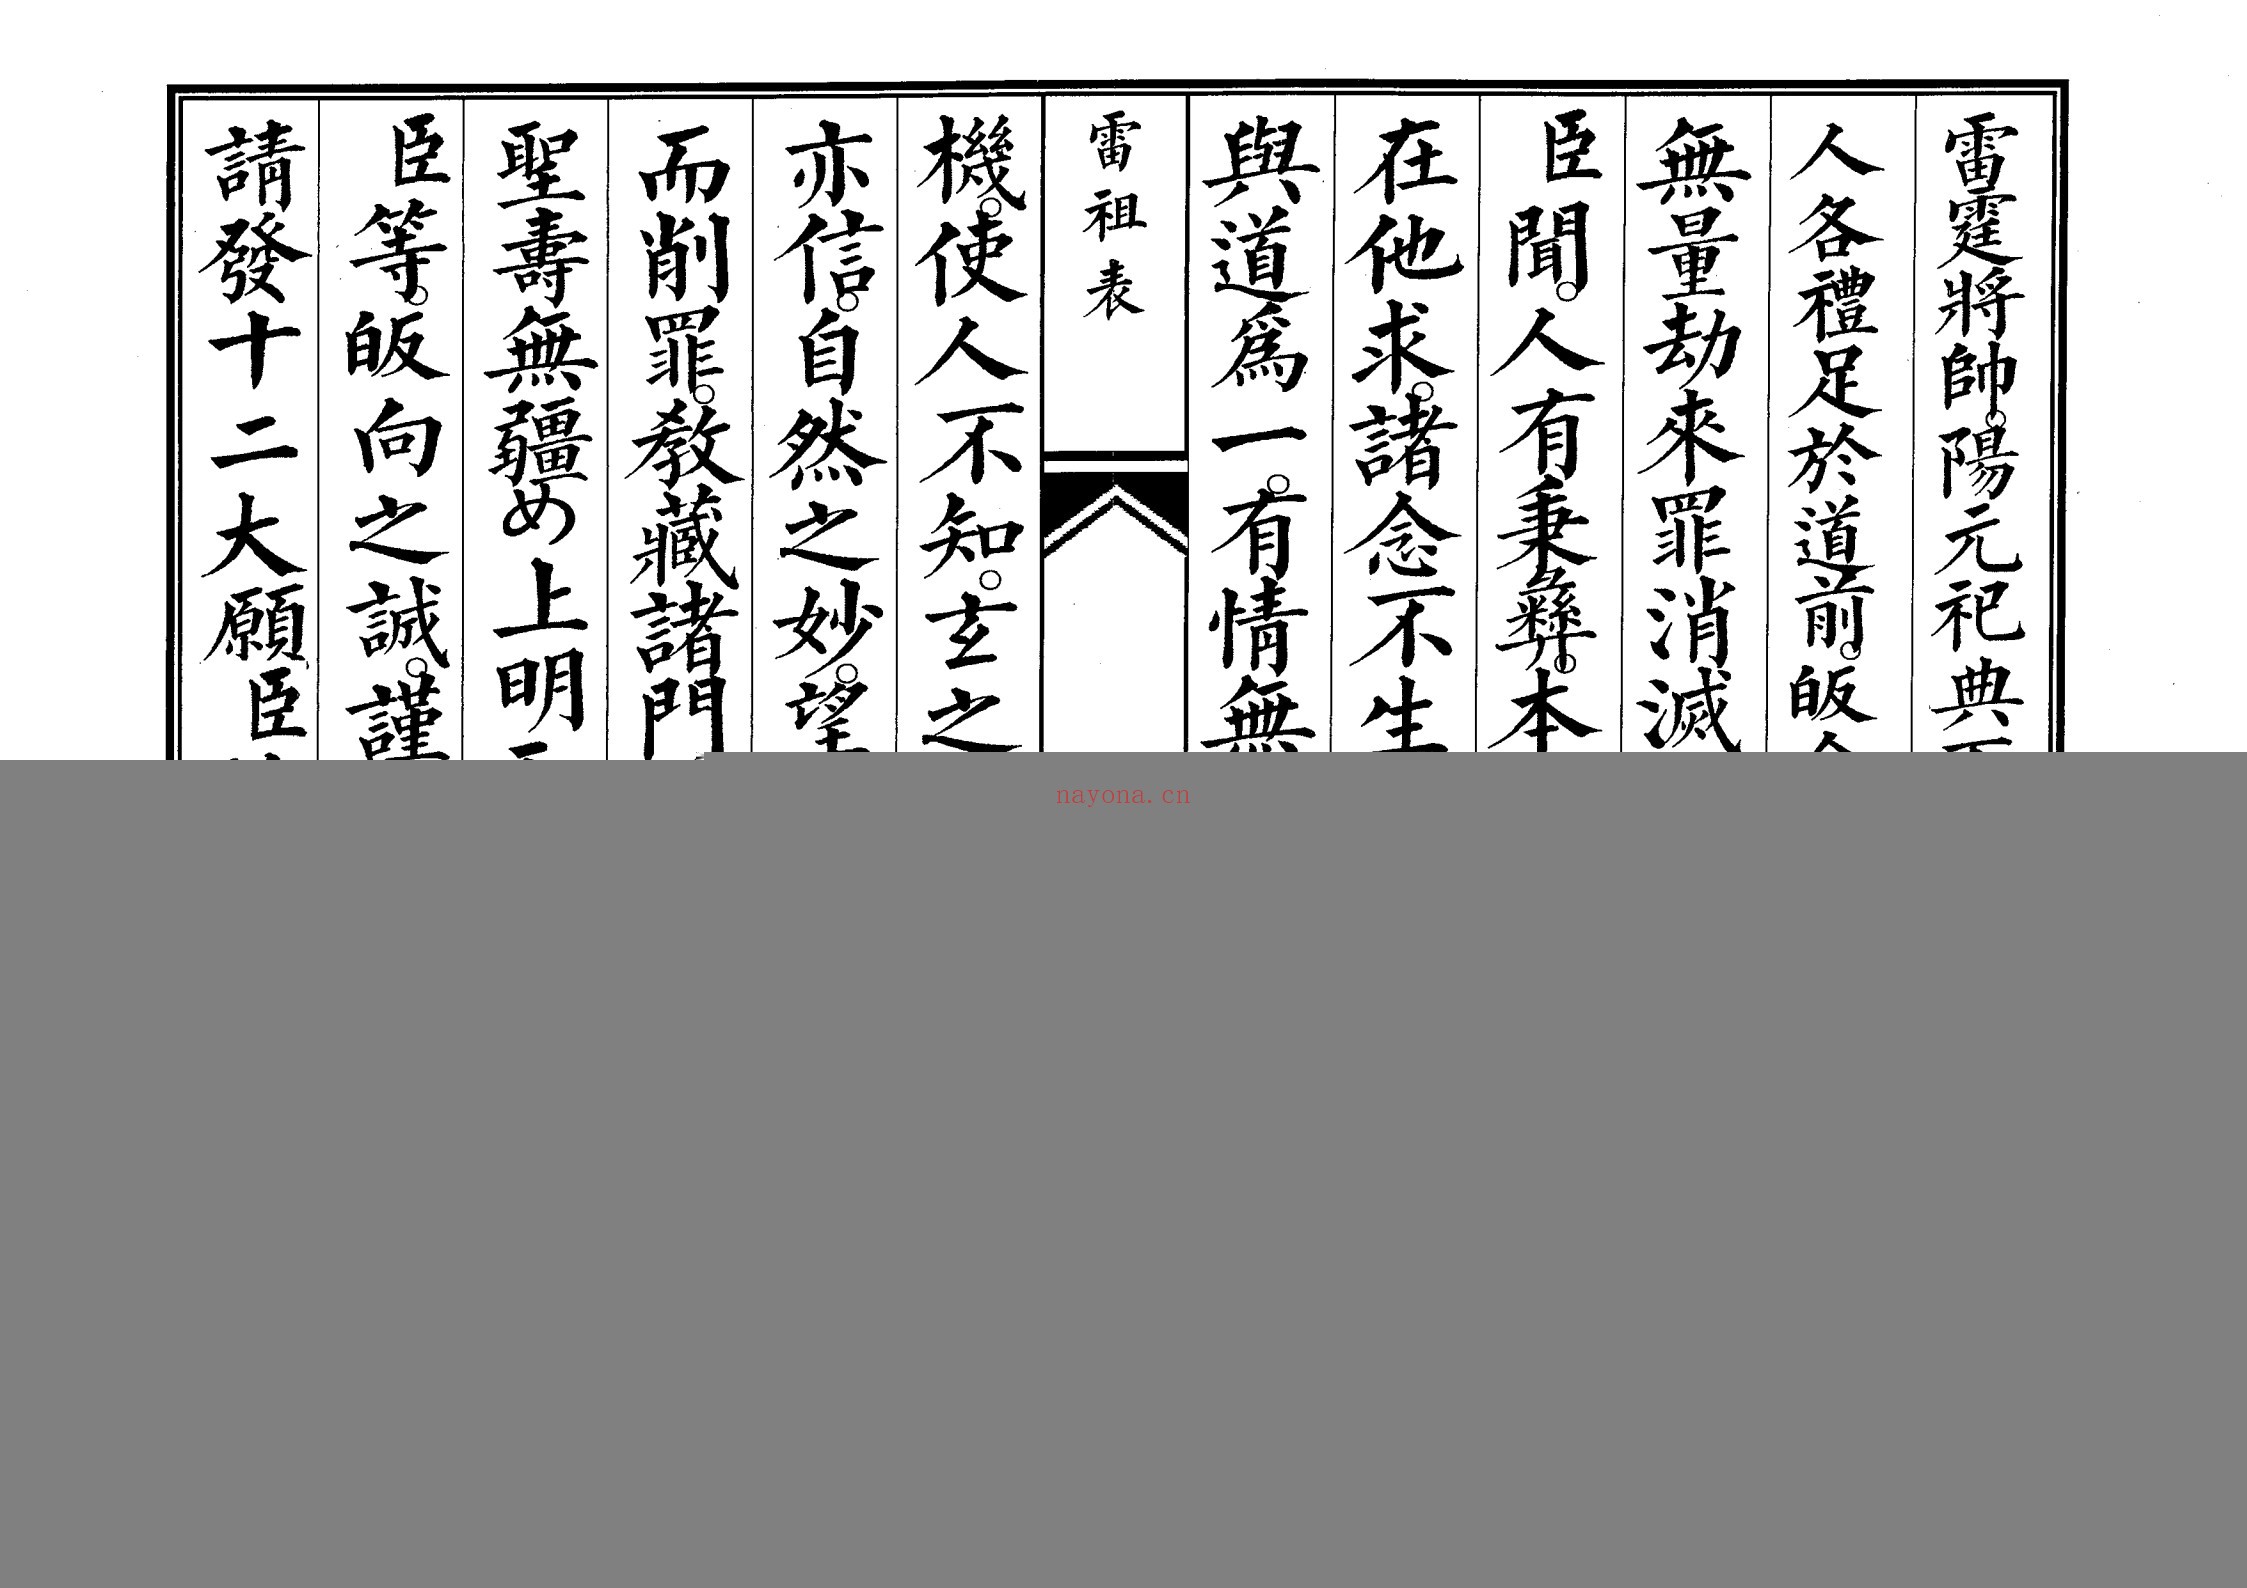 雷霆將帥。陽元祀典
人各禮足於道前。皈
無量劫來罪消滅
臣聞。人有秉彝。本
在他求。諸念不生
與道爲一。有情無
雷祖表
機。使人不知。玄之
亦信。自然之妙。望
而削罪。教藏諸門
聖壽無疆め上明
臣等。皈向之誠。謹
請發十二大願臣
nayona.cn